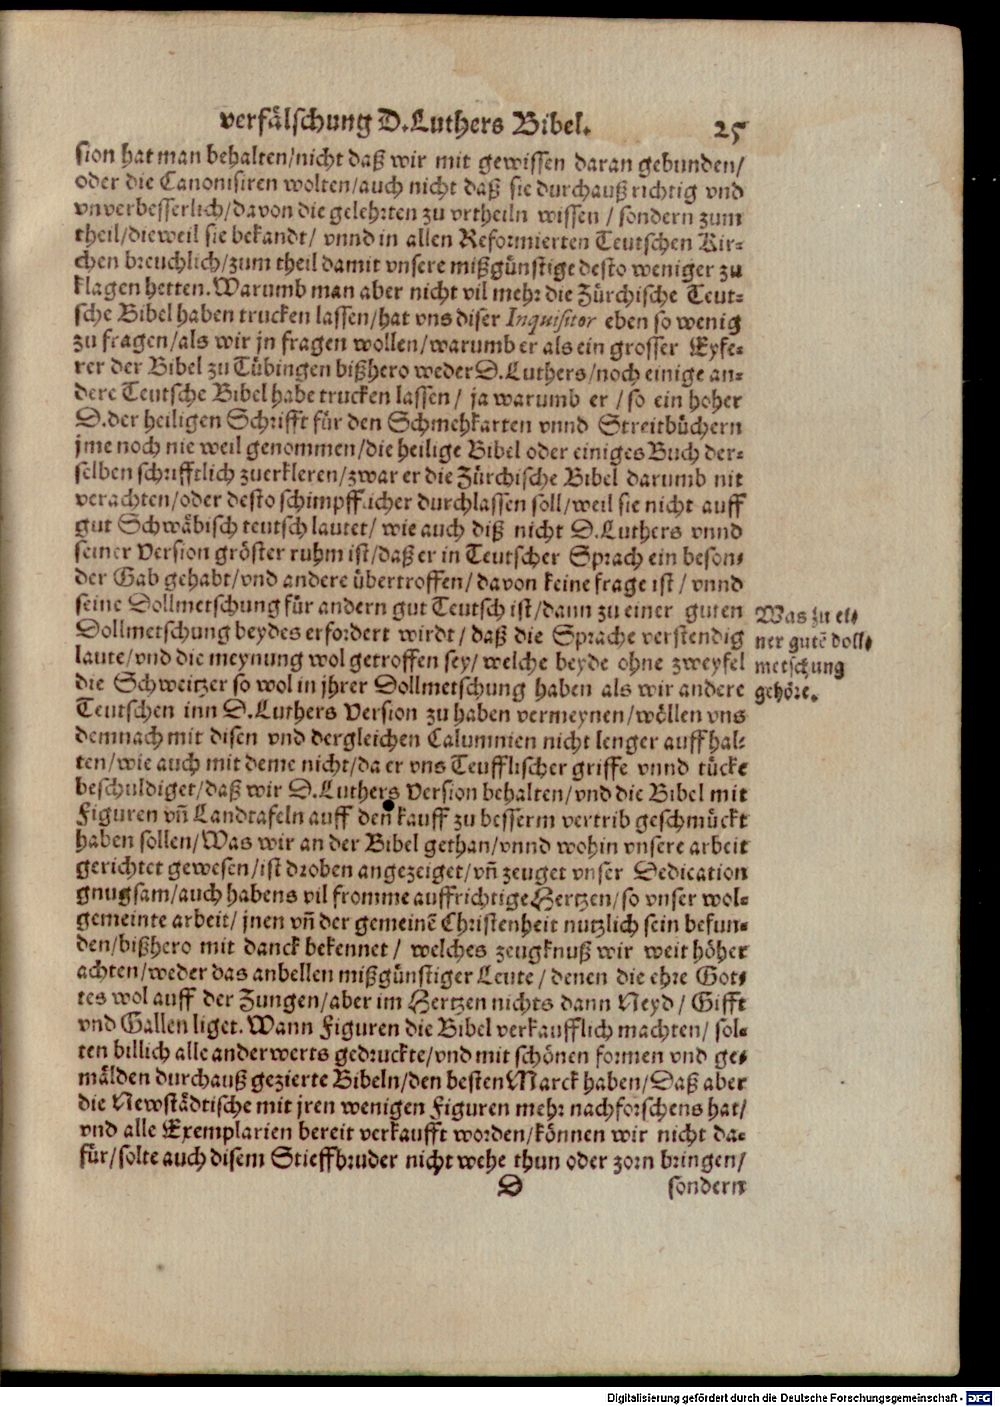 verfälschung D. Luthers Bibel. 25
sion hat man behalten/nicht daß wir mit gewissen daran gebunden/
oder die Canonisiren wolten/auch nicht daß sie durchauß richtig vnd
vnverbesserlich/davon die gelehrten zu vrtheiln wissen / sondern zum
theil/dieweil sie bekandt/ vnnd in allen Reformierten Teutschen Kir-
chen breuchlich/zum theil damit vnsere mißgünstige desto weniger zu
klagen hetten. Warumb man aber nicht vil mehr die Zürchische Teut-
sche Bibel haben trucken lassen/hat vns diser Inquisitor eben so wenig
zu fragen/als wir jn fragen wollen/warumb er als ein grosser Eyfe-
rer der Bibel zu Tübingen bißhero weder D. Luthers/noch einige an-
dere Teutsche Bibel habe trucken lassen/ ja warumb er / so ein hoher
D. der heiligen Schrifft für den Schmehkarten vnnd Streitbüchern
jme noch nie weil genommen/die heilige Bibel oder einiges Buch der-
selben schrifftlich zuerkleren/zwar er die Zürchische Bibel darumb nit
verachten/oder desto schimpfflicher durchlassen soll/weil sie nicht auff
gut Schwäbisch teutsch lautet/ wie auch diß nicht D. Luthers vnnd
seiner Version gröster ruhm ist/daß er in Teutscher Sprach ein beson-
der Gab gehabt/vnd andere übertroffen/davon keine frage ist / vnnd
seine Dollmetschung für andern gut Teutsch ist/dann zu einer guten
Dollmetschung beydes erfordert wirdt/ daß die Sprache verstendig
laute/vnd die meynung wol getroffen sey/ welche beyde ohne zweyfel
die Schweitzer so wol in jhrer Dollmetschung haben als wir andere
Teutschen inn D. Luthers Version zu haben vermeynen/wöllen vns
demnach mit disen vnd dergleichen Calumnien nicht lenger auffhal-
ten/wie auch mit deme nicht/da er vns Teufflischer griffe vnnd tücke
beschuldiget/daß wir D. Luthers Version behalten/vnd die Bibel mit
Figuren vn̄ Landtafeln auff den kauff zu besserm vertrib geschmückt
haben sollen/Was wir an der Bibel gethan/vnnd wohin vnsere arbeit
gerichtet gewesen/ist droben angezeiget/vn̄ zeuget vnser Dedication
gnugsam/auch habens vil fromme auffrichtige Hertzen/so vnser wol-
gemeinte arbeit/ jnen vn̄ der gemeinē Christenheit nutzlich sein befun-
den/bißhero mit danck bekennet / welches zeugknuß wir weit höher
achten/weder das anbellen mißgünstiger Leute / denen die ehre Got-
tes wol auff der Zungen/aber im Hertzen nichts dann Neyd / Gifft
vnd Gallen liget. Wann Figuren die Bibel verkaufflich machten/ sol-
ten billich alle anderwerts gedruckte/vnd mit schönen formen vnd ge-
mälden durchauß gezierte Bibeln/den besten Marck haben/Daß aber
die Newstädtische mit jren wenigen Figuren mehr nachforschens hat/
vnd alle Exemplarien bereit verkaufft worden/können wir nicht da-
für/solte auch disem Stieffbruder nicht wehe thun oder zorn bringen/
D sondern
Was zu ei-
ner gutē doll-
metschung
gehöre.
Digitalisierung gefördert durch die Deutsche Forschungsgemeinschaft - DFG